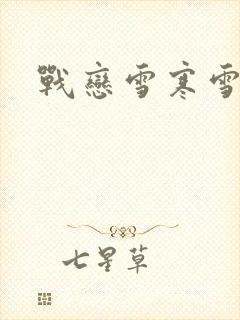 戰戀雪寒雪
七星草